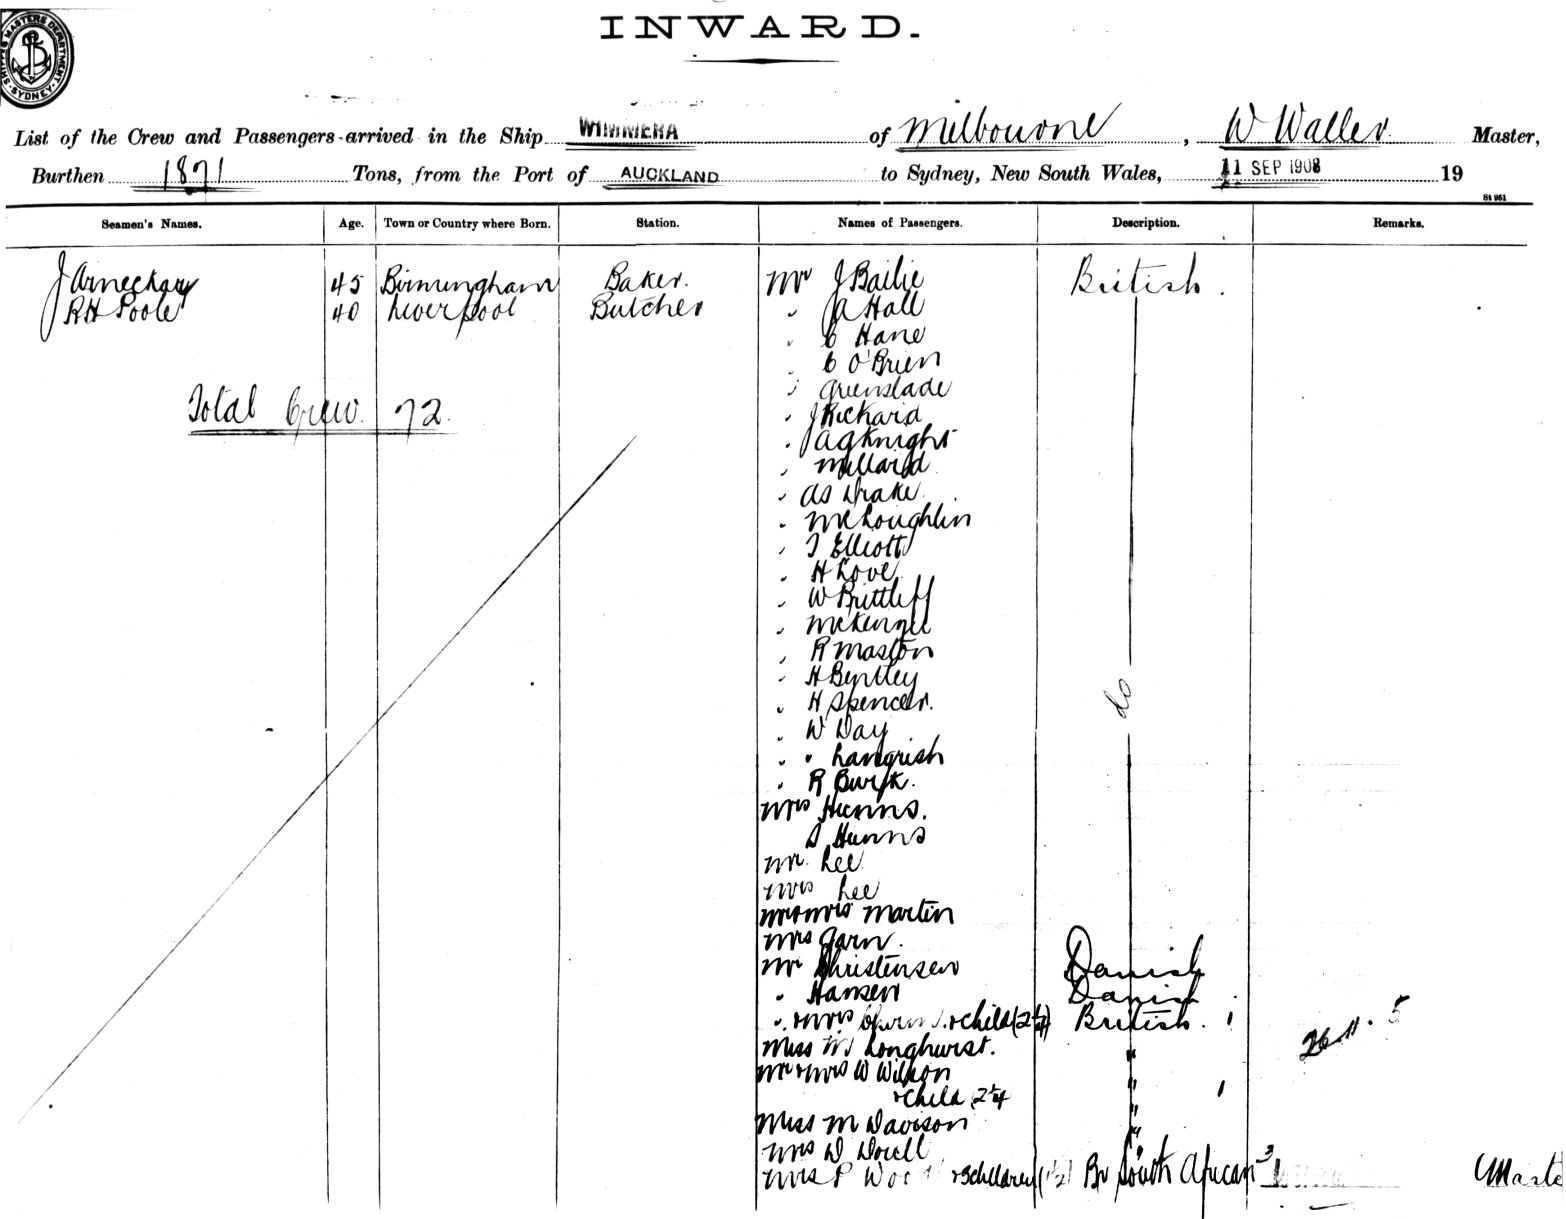 SHIPPING MASTERS DEPARTMENT. SYDNEY.
INWARD.
List of the Crew and Passengers arrived in the Ship WIMMERA of Melbourne, W Waller Master,
Burthen 1871 Tons, from the Port of AUCKLAND to Sydney, New South Wales, 11 SEP 1908 19
St 951
Seamen's Names. Age. Town or Country where Born. Station. Names of Passengers. Description. Remarks.
J 45 Birmingham Baker. Mr J Bailie British.
RH Poole 40 Liverpool Butcher " JA Hall
" C Hane
" C O'Brien
" Greenslade
Total Crew. 72. " J Rickard
" AG Knight
" Millard
" AS Drake
" McLoughlin
" T Elliott
" H Love
" W Brittliff
" McKenzie
" R Maston
" H Bentley
" H Spencer. do
" W Day
" " Langrish
" R Burk.
Mrs Hunns.
S Hunns
Mr Lee
Mrs Lee
Mr & Mrs Martin
Mrs Garn.
Mr Christensen Danish
" Hansen Danish
" & Mrs & child (2 British.
Miss M Longhurst. "
Mr & Mrs W Wilson "
& Child 2
Miss M Davison "
Mrs D Dowell "
Mrs P & 3 children Br South African 3